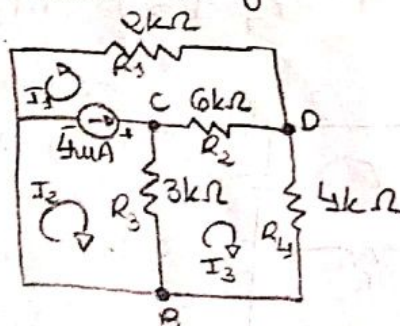 2kΩ
R1
I1
C
6kΩ
D
- +
4mA
R2
I2
R3
3kΩ
I3
R4
4kΩ